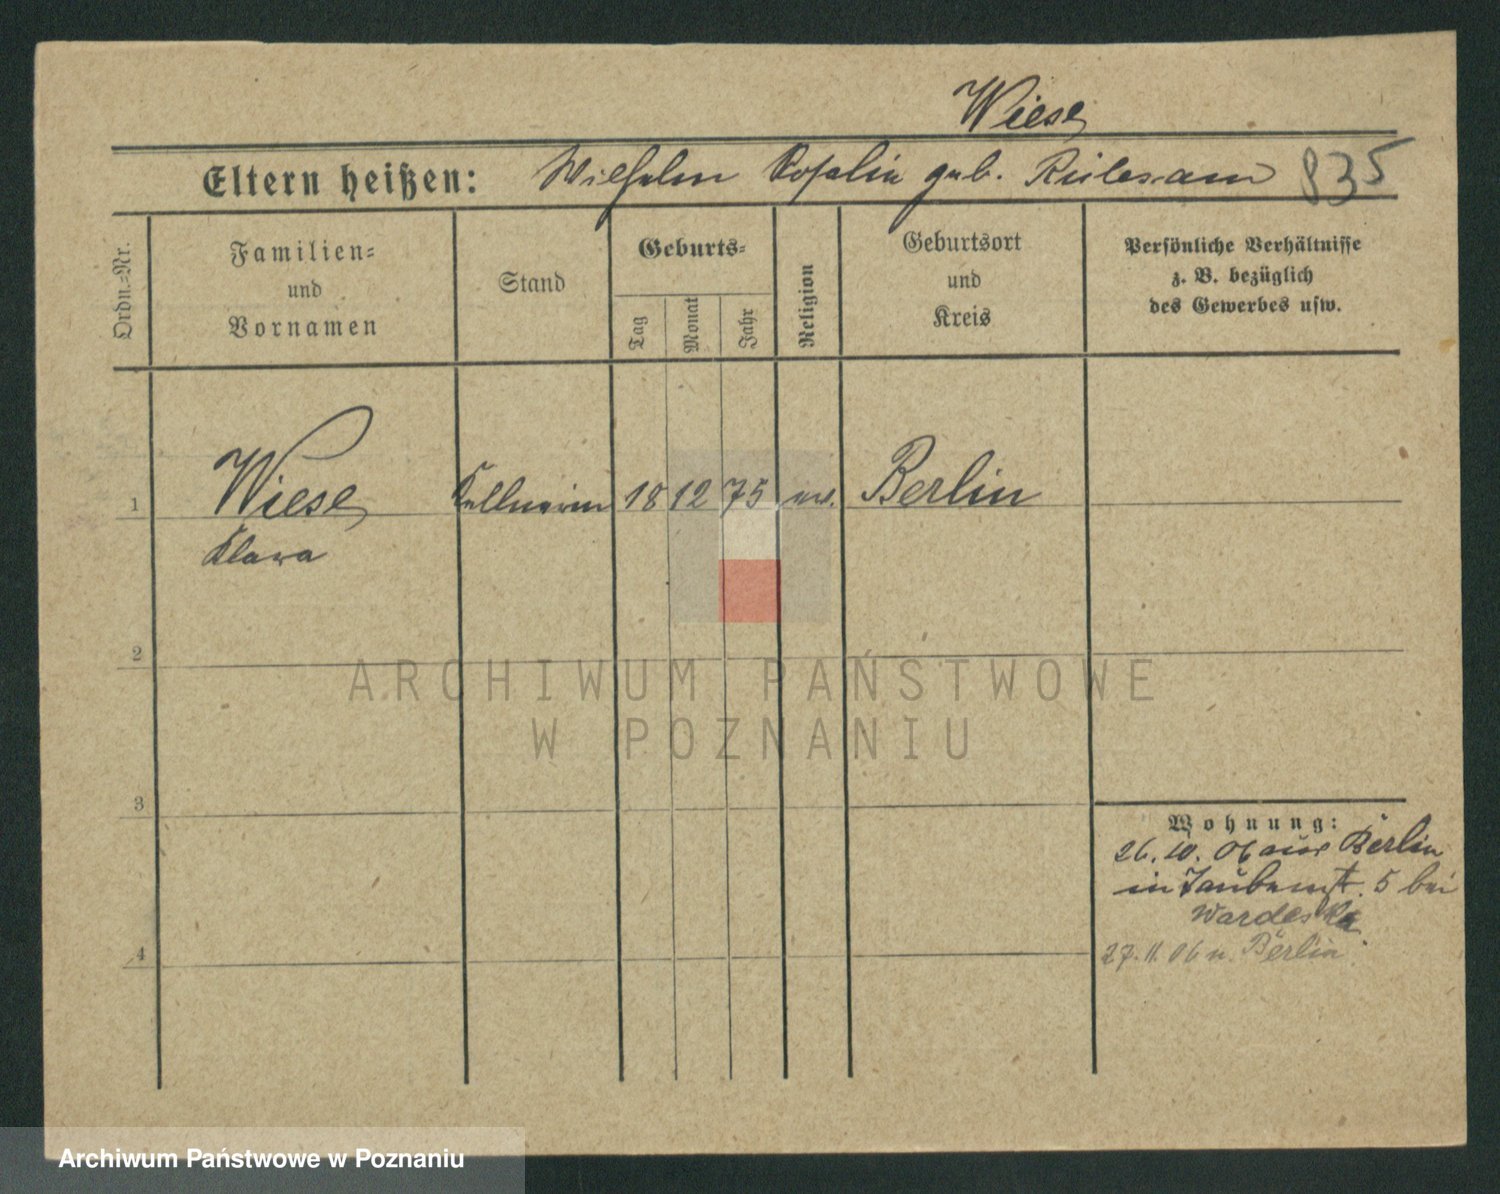 Wiese
Eltern heißen: Wilhelm Rosalie geb. 835
Ordn.-Nr.
Familien-
und
Vornamen
Stand
Geburts-
Tag
Monat
Jahr
Religion
Geburtsort
und
Kreis
Persönliche Verhältnisse
z. B. bezüglich
des Gewerbes usw.
1 Wiese Kellnerin 18 12 75 ev. Berlin
Klara
2
ARCHIWUM PAŃSTWOWE
W POZNANIU
3
Wohnung:
26. 10. 06 aus Berlin
in Taubenstr. 5 bei
Wardeska
4
27. 11. 06 n. Berlin
Archiwum Państwowe w Poznaniu